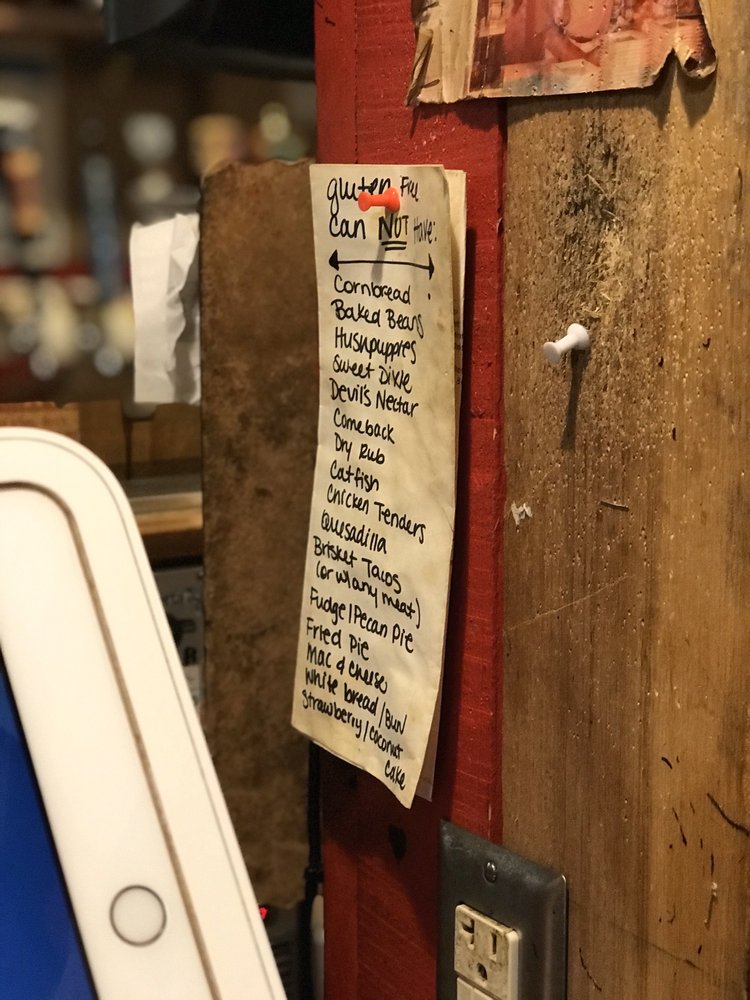 gluten Free
can NOT Have:
Cornbread
Baked Beans
Hushpuppies
Sweet Dixie
Devil's Nectar
Comeback
Dry Rub
Catfish
Chicken Tenders
Quesadilla
Brisket Tacos
(or w/any meat)
Fudge/Pecan Pie
Fried Pie
Mac & Cheese
White bread/Bun
Strawberry/Coconut
Cake